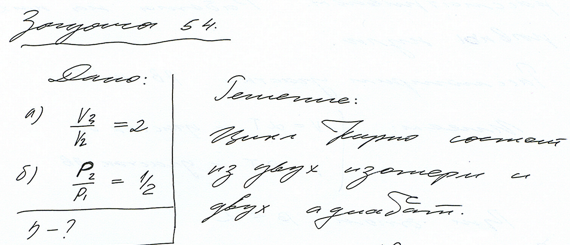 Задача 54.
Дано:
а) V₃/V₂ = 2
б) P₂/P₁ = 1/2
η - ?
Решение:
Цикл Карно состоит
из двух изотерм и
двух адиабат.